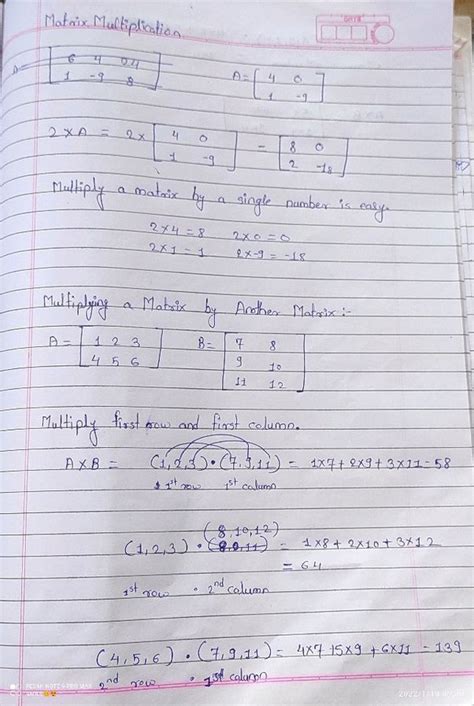 Matrix Multiplication
DATE
A= [6 4 24
1 -9 8]
A= [4 0
1 -9]
2×A = 2× [4 0
1 -9] = [8 0
2 -18]
Multiply a matrix by a single number is easy.
2×4=8 2×0=0
2×1-1 2×-9=-18
Multiplying a Matrix by Another Matrix:-
A= [1 2 3
4 5 6]
B= [7 8
9 10
11 12]
Multiply first row and first column.
A×B = (1,2,3)•(7,9,11) = 1×7+2×9+3×11=58
1st row 1st column
(8,10,12)
(1,2,3)• = 1×8+2×10+3×12
= 64
1st row • 2nd column
(4,5,6)•(7,9,11)= 4×7 15×9 +6×11 - 139
2nd row • 1st column